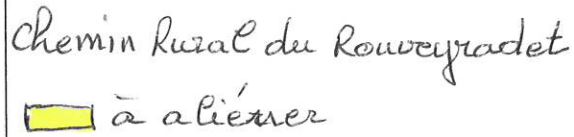 Chemin Rural du Rouveyradet
à aliéner